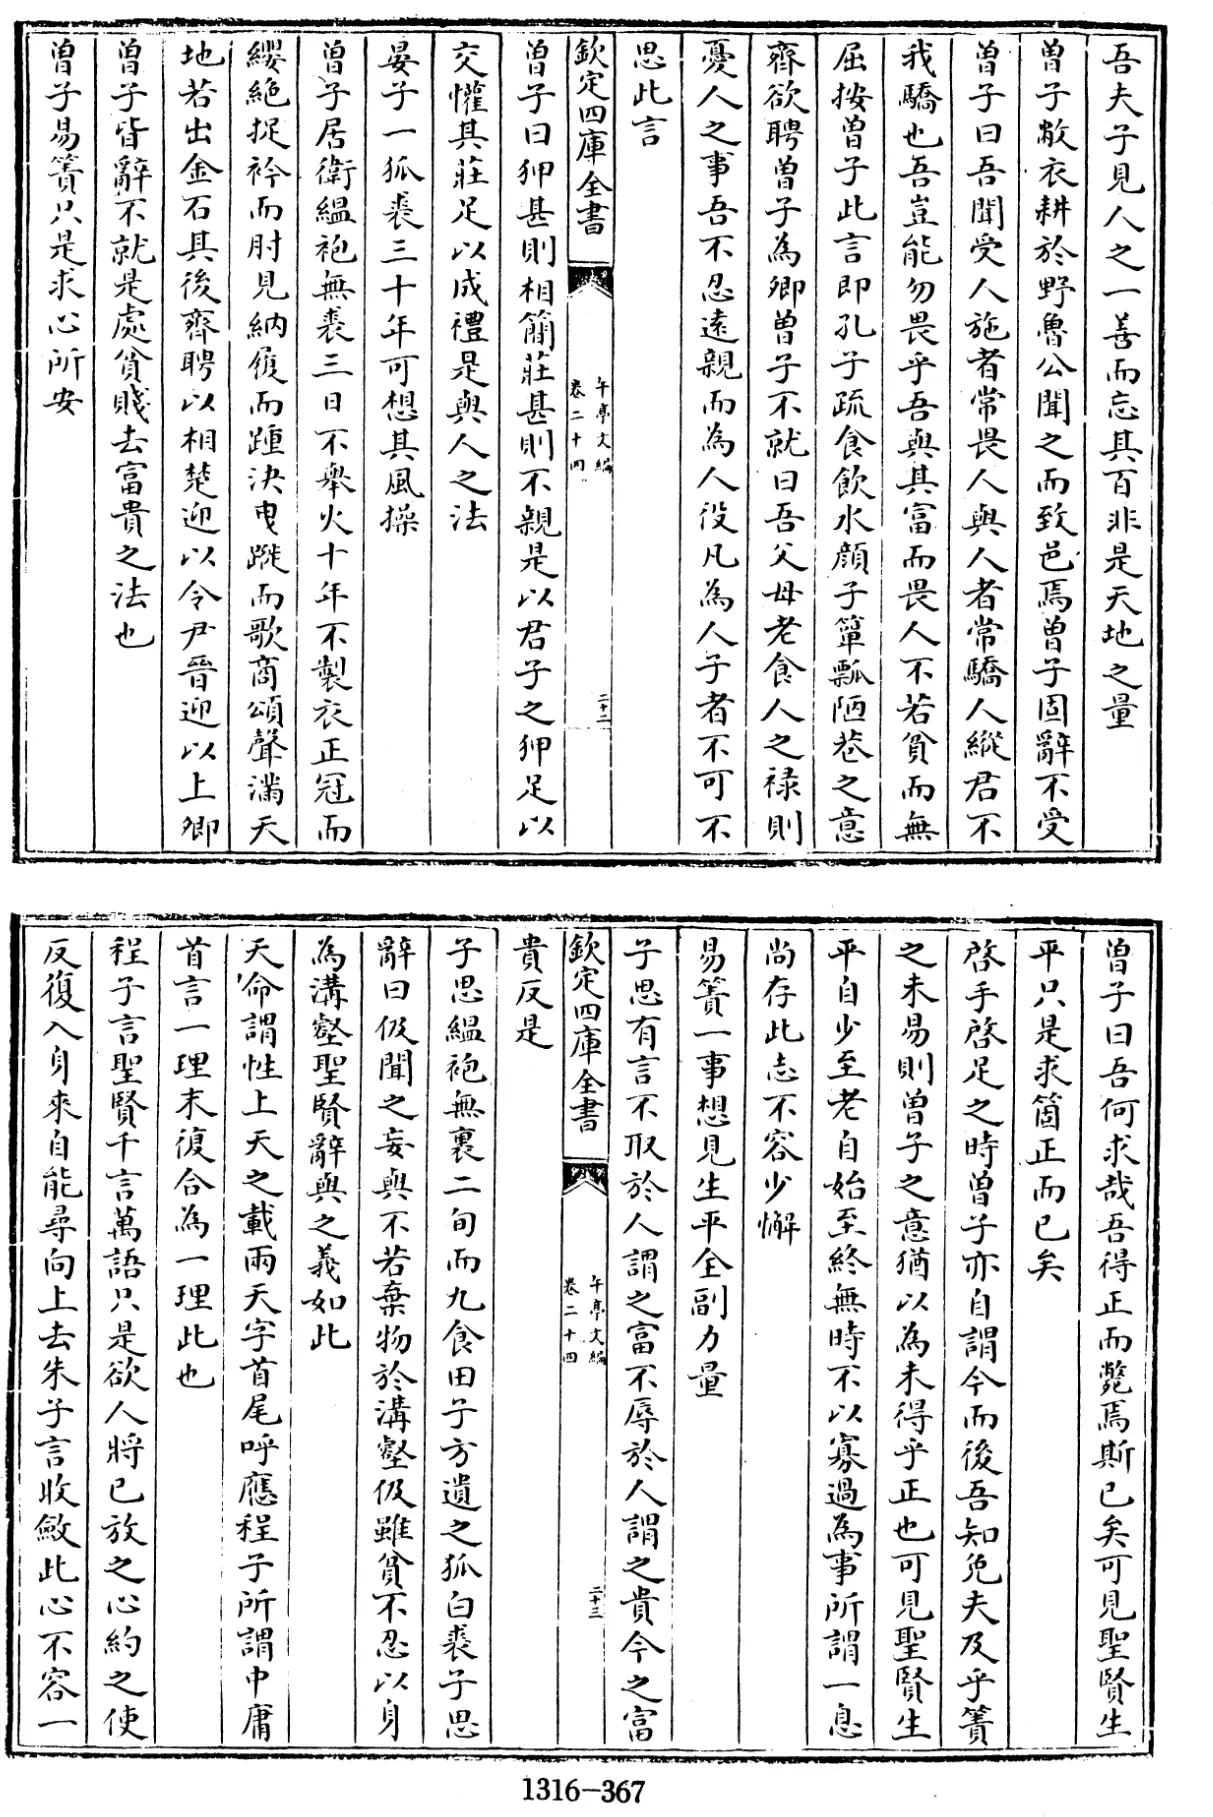 吾夫子見人之一善而忘其百非是天地之量
曾子敝衣耕於野魯公聞之而致邑焉曾子固辭不受
曾子曰吾聞受人施者常畏人與人者常驕人縱君不
我驕也吾豈能勿畏乎吾與其富而畏人不若貧而無
屈按曾子此言即孔子疏食飲水顏子簞瓢陋巷之意
齊欲聘曾子為卿曾子不就曰吾父母老食人之祿則
憂人之事吾不忍遠親而為人役凡為人子者不可不
思此言
欽定四庫全書
午亭文編
卷二十四
二十二
曾子曰狎甚則相簡莊甚則不親是以君子之狎足以
交懽其莊足以成禮是與人之法
晏子一狐裘三十年可想其風操
曾子居衛縕袍無裘三日不舉火十年不製衣正冠而
纓絶捉衿而肘見納履而踵決曳蹝而歌商頌聲滿天
地若出金石其後齊聘以相楚迎以令尹晉迎以上卿
曾子皆辭不就是處貧賤去富貴之法也
曾子易簀只是求心所安
曾子曰吾何求哉吾得正而斃焉斯已矣可見聖賢生
平只是求箇正而已矣
啓手啓足之時曾子亦自謂今而後吾知免夫及乎簀
之未易則曾子之意猶以為未得乎正也可見聖賢生
平自少至老自始至終無時不以寡過為事所謂一息
尚存此志不容少懈
易簀一事想見生平全副力量
子思有言不取於人謂之富不辱於人謂之貴今之富
貴反是
欽定四庫全書
午亭文編
卷二十四
二十三
子思縕袍無裏二旬而九食田子方遺之狐白裘子思
辭曰伋聞之妄與不若棄物於溝壑伋雖貧不忍以身
為溝壑聖賢辭與之義如此
天命謂性上天之載兩天字首尾呼應程子所謂中庸
首言一理末復合為一理此也
程子言聖賢千言萬語只是欲人將已放之心約之使
反復入身來自能尋向上去朱子言收斂此心不容一
1316-367